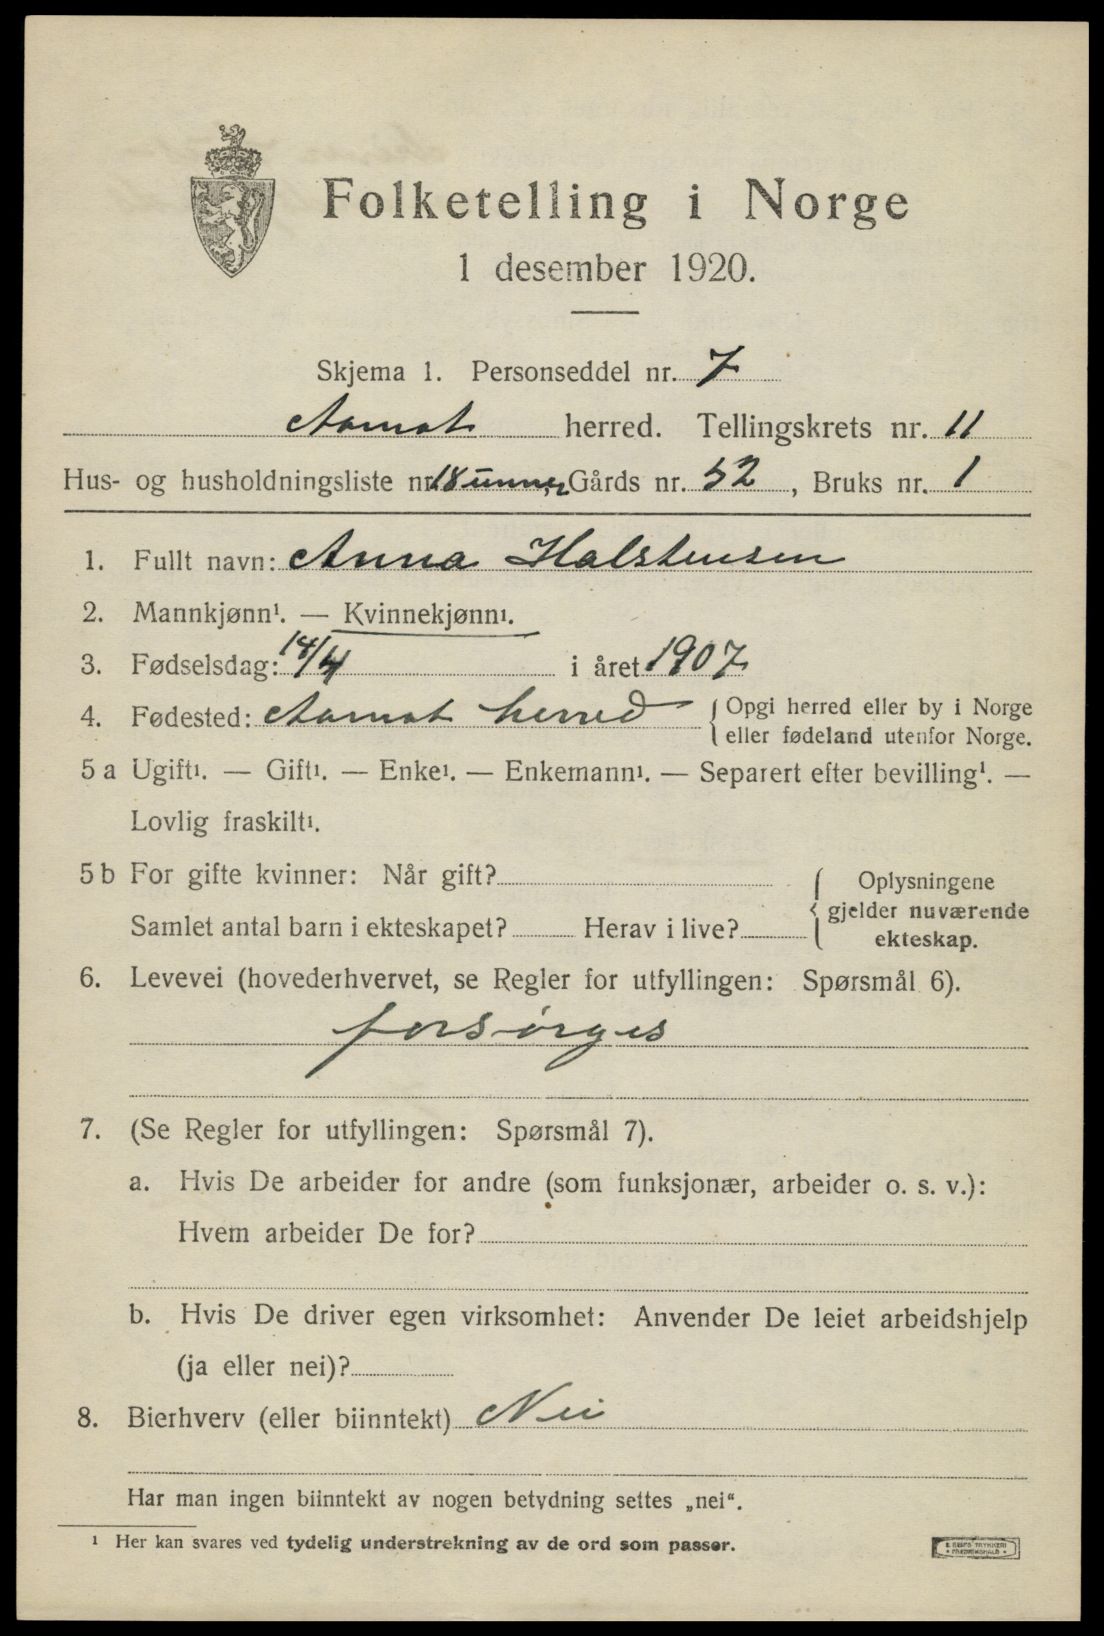 Folketelling i Norge
1 desember 1920.
Skjema 1. Personseddel nr. 7
Aamot herred. Tellingskrets nr. 11
Hus- og husholdningsliste nr. 18 Gårds nr. 52, Bruks nr. 1
1. Fullt navn: Anna Halstensen
2. Mannkjønn¹. — Kvinnekjønn¹.
3. Fødselsdag: 14/4 i året 1907
4. Fødested: Aamot herred { Opgi herred eller by i Norge
eller fødeland utenfor Norge.
5 a Ugift¹. — Gift¹. — Enke¹. — Enkemann¹. — Separert efter bevilling¹. —
Lovlig fraskilt¹.
5 b For gifte kvinner: Når gift? { Oplysningene
gjelder nuværende
Samlet antal barn i ekteskapet? Herav i live? ekteskap.
6. Levevei (hovederhvervet, se Regler for utfyllingen: Spørsmål 6).
forsørges
7. (Se Regler for utfyllingen: Spørsmål 7).
a. Hvis De arbeider for andre (som funksjonær, arbeider o. s. v.):
Hvem arbeider De for?
b. Hvis De driver egen virksomhet: Anvender De leiet arbeidshjelp
(ja eller nei)?
8. Bierhverv (eller biinntekt) Nei
Har man ingen biinntekt av nogen betydning settes „nei“.
¹ Her kan svares ved tydelig understrekning av de ord som passer.